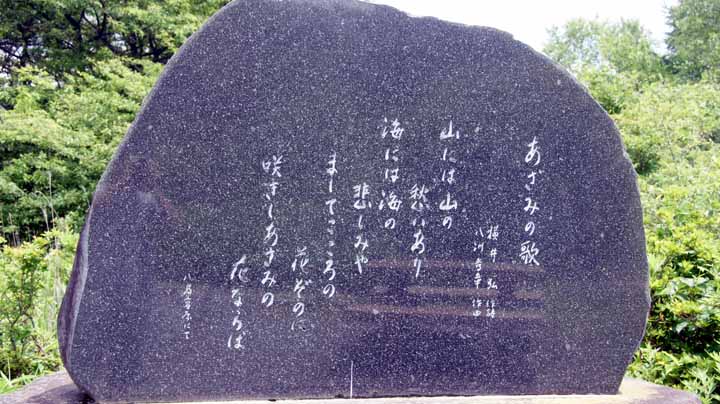 あざみの歌
横井 弘 作詩
八洲秀章 作曲
山には山の
愁いあり
海には海の
悲しみや
ましてこころの
花ぞのに
咲きしあざみの
花ならば
八島高原にて